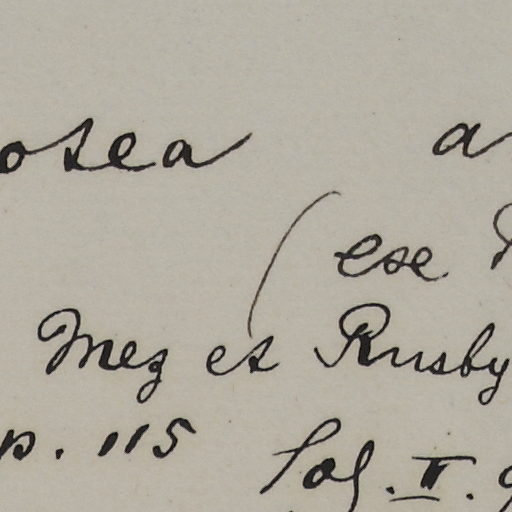 osea a
(exe
Mez et Rusby
p. 115 Fol. II.